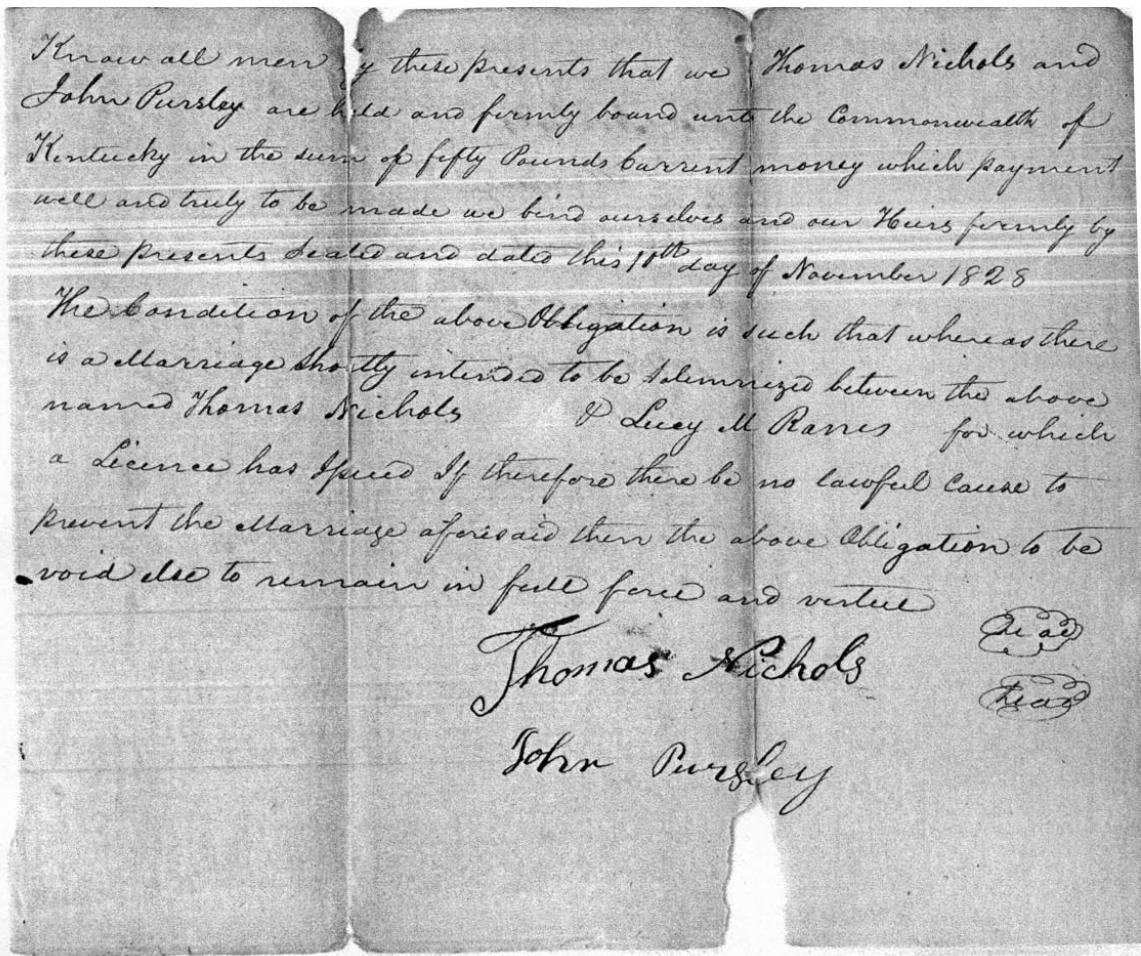 Know all men y these presents that we Thomas Nichols and
John Pursley are held and firmly bound unto the Commonwealth of
Kentucky in the sum of fifty Pounds Current money which payment
well and truly to be made we bind ourselves and our Heirs firmly by
these presents Sealed and dated this day of November 1828
The Condition of the above Obligation is such that whereas there
is a Marriage Shortly intended to be Solemnized between the above
named Thomas Nichols & Lucy M for which
a Licence has Issued If therefore there be no lawful Cause to
prevent the Marriage aforesaid then the above Obligation to be
void else to remain in full force and vertue
Thomas Nichols Seal
John Pursley Seal